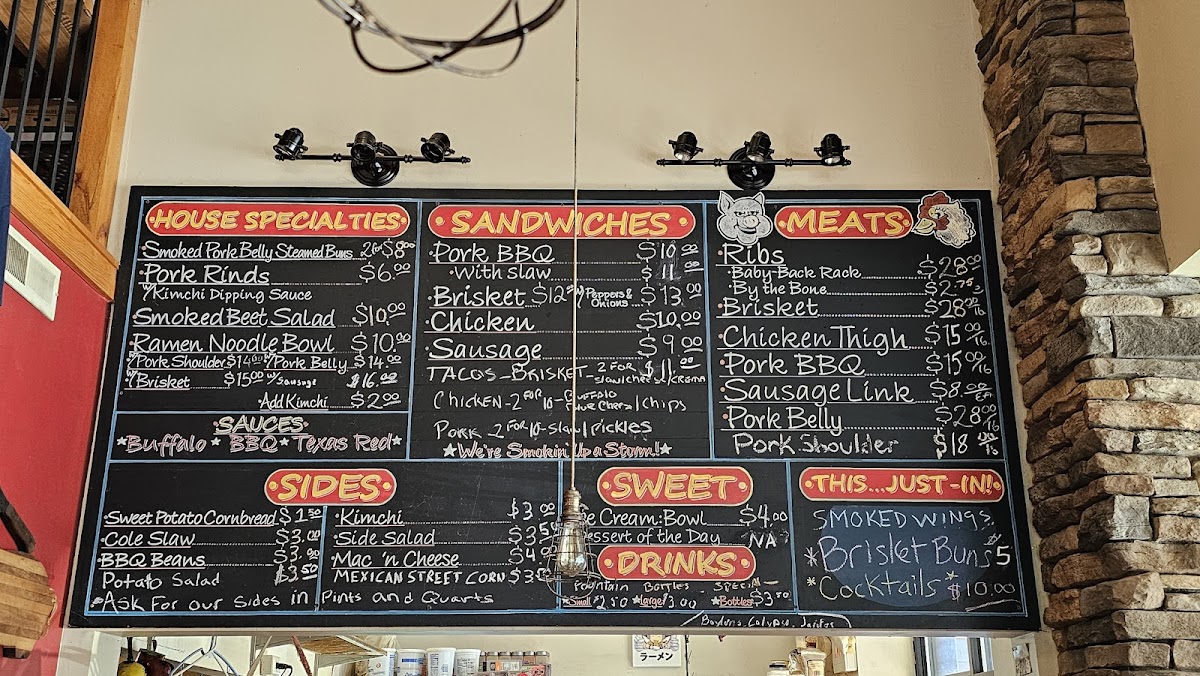 HOUSE SPECIALTIES
Smoked Pork Belly Steamed Buns 2 for $8.00
Pork Rinds $6.00
W/Kimchi Dipping Sauce
Smoked Beet Salad $10.00
Ramen Noodle Bowl $10.00
W/Pork Shoulder $14.00 W/Pork Belly $14.00
W/Brisket $15.00 W/Sausage $16.00
Add Kimchi $2.00
SAUCES
*Buffalo * BBQ * Texas Red*
SANDWICHES
Pork BBQ $10.00
With slaw $11.00
Brisket $12 W/ Peppers & Onions $13.00
Chicken $10.00
Sausage $9.00
TACOS - BRISKET 2 FOR $11.00
Chicken - 2 FOR 10 - Buffalo Blue Chers / Chips
Pork - 2 FOR 10 - Slaw / Pickles
*We're Smokin Up a Storm!*
MEATS
Ribs
Baby Back Rack $28.00
By the Bone $2.75
Brisket $28.00/16
Chicken Thigh $15.00/16
Pork BBQ $15.00/16
Sausage Link $8.00 EA
Pork Belly $28.00/16
Pork Shoulder $18.00/16
SIDES
Sweet Potato Cornbread $1.50
Cole Slaw $3.00
BBQ Beans $3.90
Potato Salad $3.50
Kimchi $3.00
Side Salad $3.50
Mac 'n Cheese $4.00
MEXICAN STREET CORN
*Ask For our Sides in Pints and Quarts
SWEET
Cream: Bowl $4.00
of the Day NA
DRINKS
Fountain Bottles
Small 2.50 *Large 3.00 *Bottles $3.50
THIS...JUST-IN!
SMOKED WINGS
*Brisket Buns 5
*Cocktails* $10.00
ラーメン